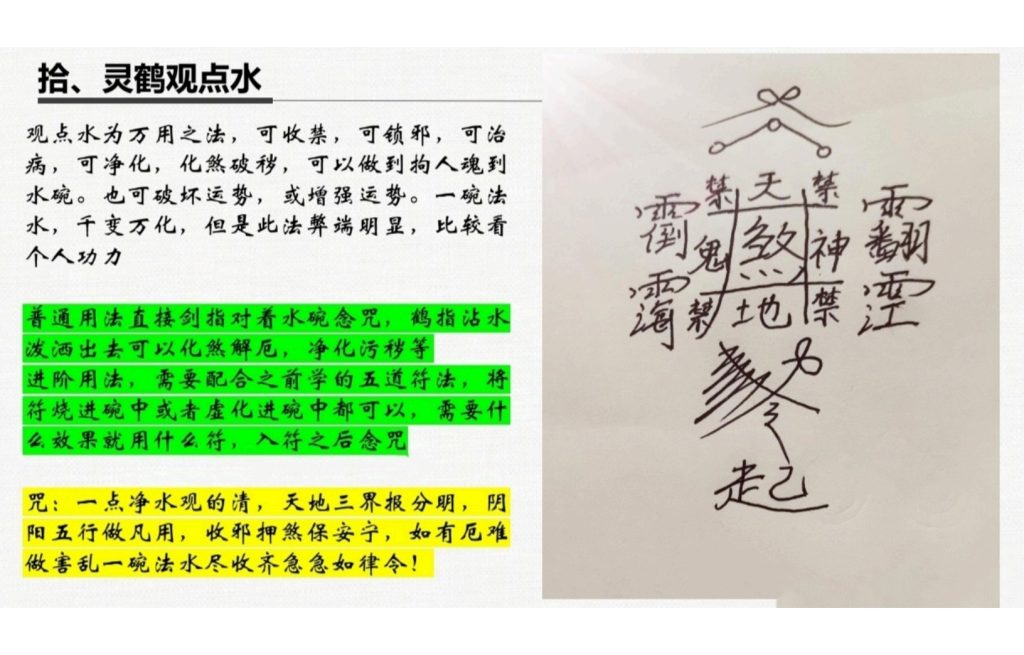 拾、灵鹤观点水
观点水为万用之法，可收禁，可锁邪，可治
病，可净化，化煞破秽，可以做到拘人魂到
水碗。也可破坏运势，或增强运势。一碗法
水，千变万化，但是此法弊端明显，比较看
个人功力
普通用法直接剑指对着水碗念咒，鹤指沾水
泼洒出去可以化煞解厄，净化污秽等
进阶用法，需要配合之前学的五道符法，将
符烧进碗中或者虚化进碗中都可以，需要什
么效果就用什么符，入符之后念咒
咒：一点净水观的清，天地三界报分明，阴
阳五行做凡用，收邪押煞保安宁，如有厄难
做害乱一碗法水尽收齐急急如律令！
禁 天 禁
鬼 煞 神
禁 地 禁
起